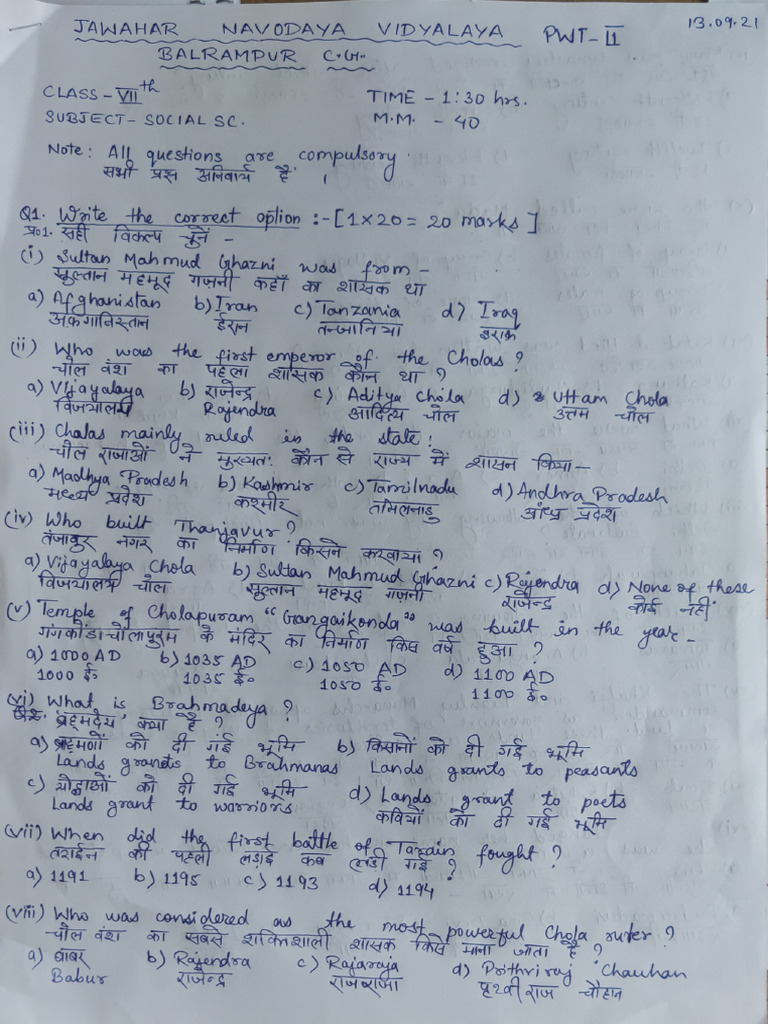 JAWAHAR NAVODAYA VIDYALAYA PWT-II 13.09.21
BALRAMPUR C.G.
CLASS-VIIth TIME - 1:30 hrs.
SUBJECT- SOCIAL SC. M.M. - 40
Note: All questions are compulsory.
सभी प्रश्न अनिवार्य हैं ।
Q1. Write the correct option :-[1×20=20 marks]
प्र०1. सही विकल्प चुनें -
(i) Sultan Mahmud Ghazni was from -
सुल्तान महमूद गज़नी कहाँ का शासक था
a) Afghanistan b) Iran c) Tanzania d) Iraq
अफगानिस्तान ईरान तन्जानिया इराक
(ii) Who was the first emperor of the Cholas?
चोल वंश का पहला शासक कौन था ?
a) Vijayalaya b) राजेन्द्र c) Aditya Chola d) Uttam Chola
विजयालय Rajendra आदित्य चोल उत्तम चोल
(iii) Cholas mainly ruled in the state:
चोल राजाओं ने मुख्यतः कौन से राज्य में शासन किया-
a) Madhya Pradesh b) Kashmir c) Tamilnadu d) Andhra Pradesh
मध्य प्रदेश कश्मीर तमिलनाडु आंध्र प्रदेश
(iv) Who built Thanjavur?
तंजावुर नगर का निर्माण किसने करवाया ?
a) Vijayalaya Chola b) Sultan Mahmud Ghazni c) Rajendra d) None of these
विजयालय चोल सुल्तान महमूद गज़नी राजेन्द्र कोई नहीं
(v) Temple of Cholapuram "Gangaikonda" was built in the year -
गंगकोंडाचोलापुरम के मंदिर का निर्माण किस वर्ष हुआ ?
a) 1000 AD b) 1035 AD c) 1050 AD d) 1100 AD
1000 ई० 1035 ई० 1050 ई० 1100 ई०
(vi) What is Brahmadeya ?
ब्रह्मदेय क्या है ?
a) ब्रह्मणों को दी गई भूमि b) किसानों को दी गई भूमि
Lands grants to Brahmanas Lands grants to peasants
c) योद्धाओं को दी गई भूमि d) Lands grant to poets
Lands grant to warriors कवियों को दी गई भूमि
(vii) When did the first battle of Tarain fought ?
तराईन की पहली लड़ाई कब लड़ी गई ?
a) 1191 b) 1195 c) 1193 d) 1194
(viii) Who was considered as the most powerful Chola ruler ?
चोल वंश का सबसे शक्तिशाली शासक किसे माना जाता है ?
a) बाबर b) Rajendra c) Rajaraja d) Prithriraj Chauhan
Babur राजेन्द्र राजराजा पृथ्वीराज चौहान